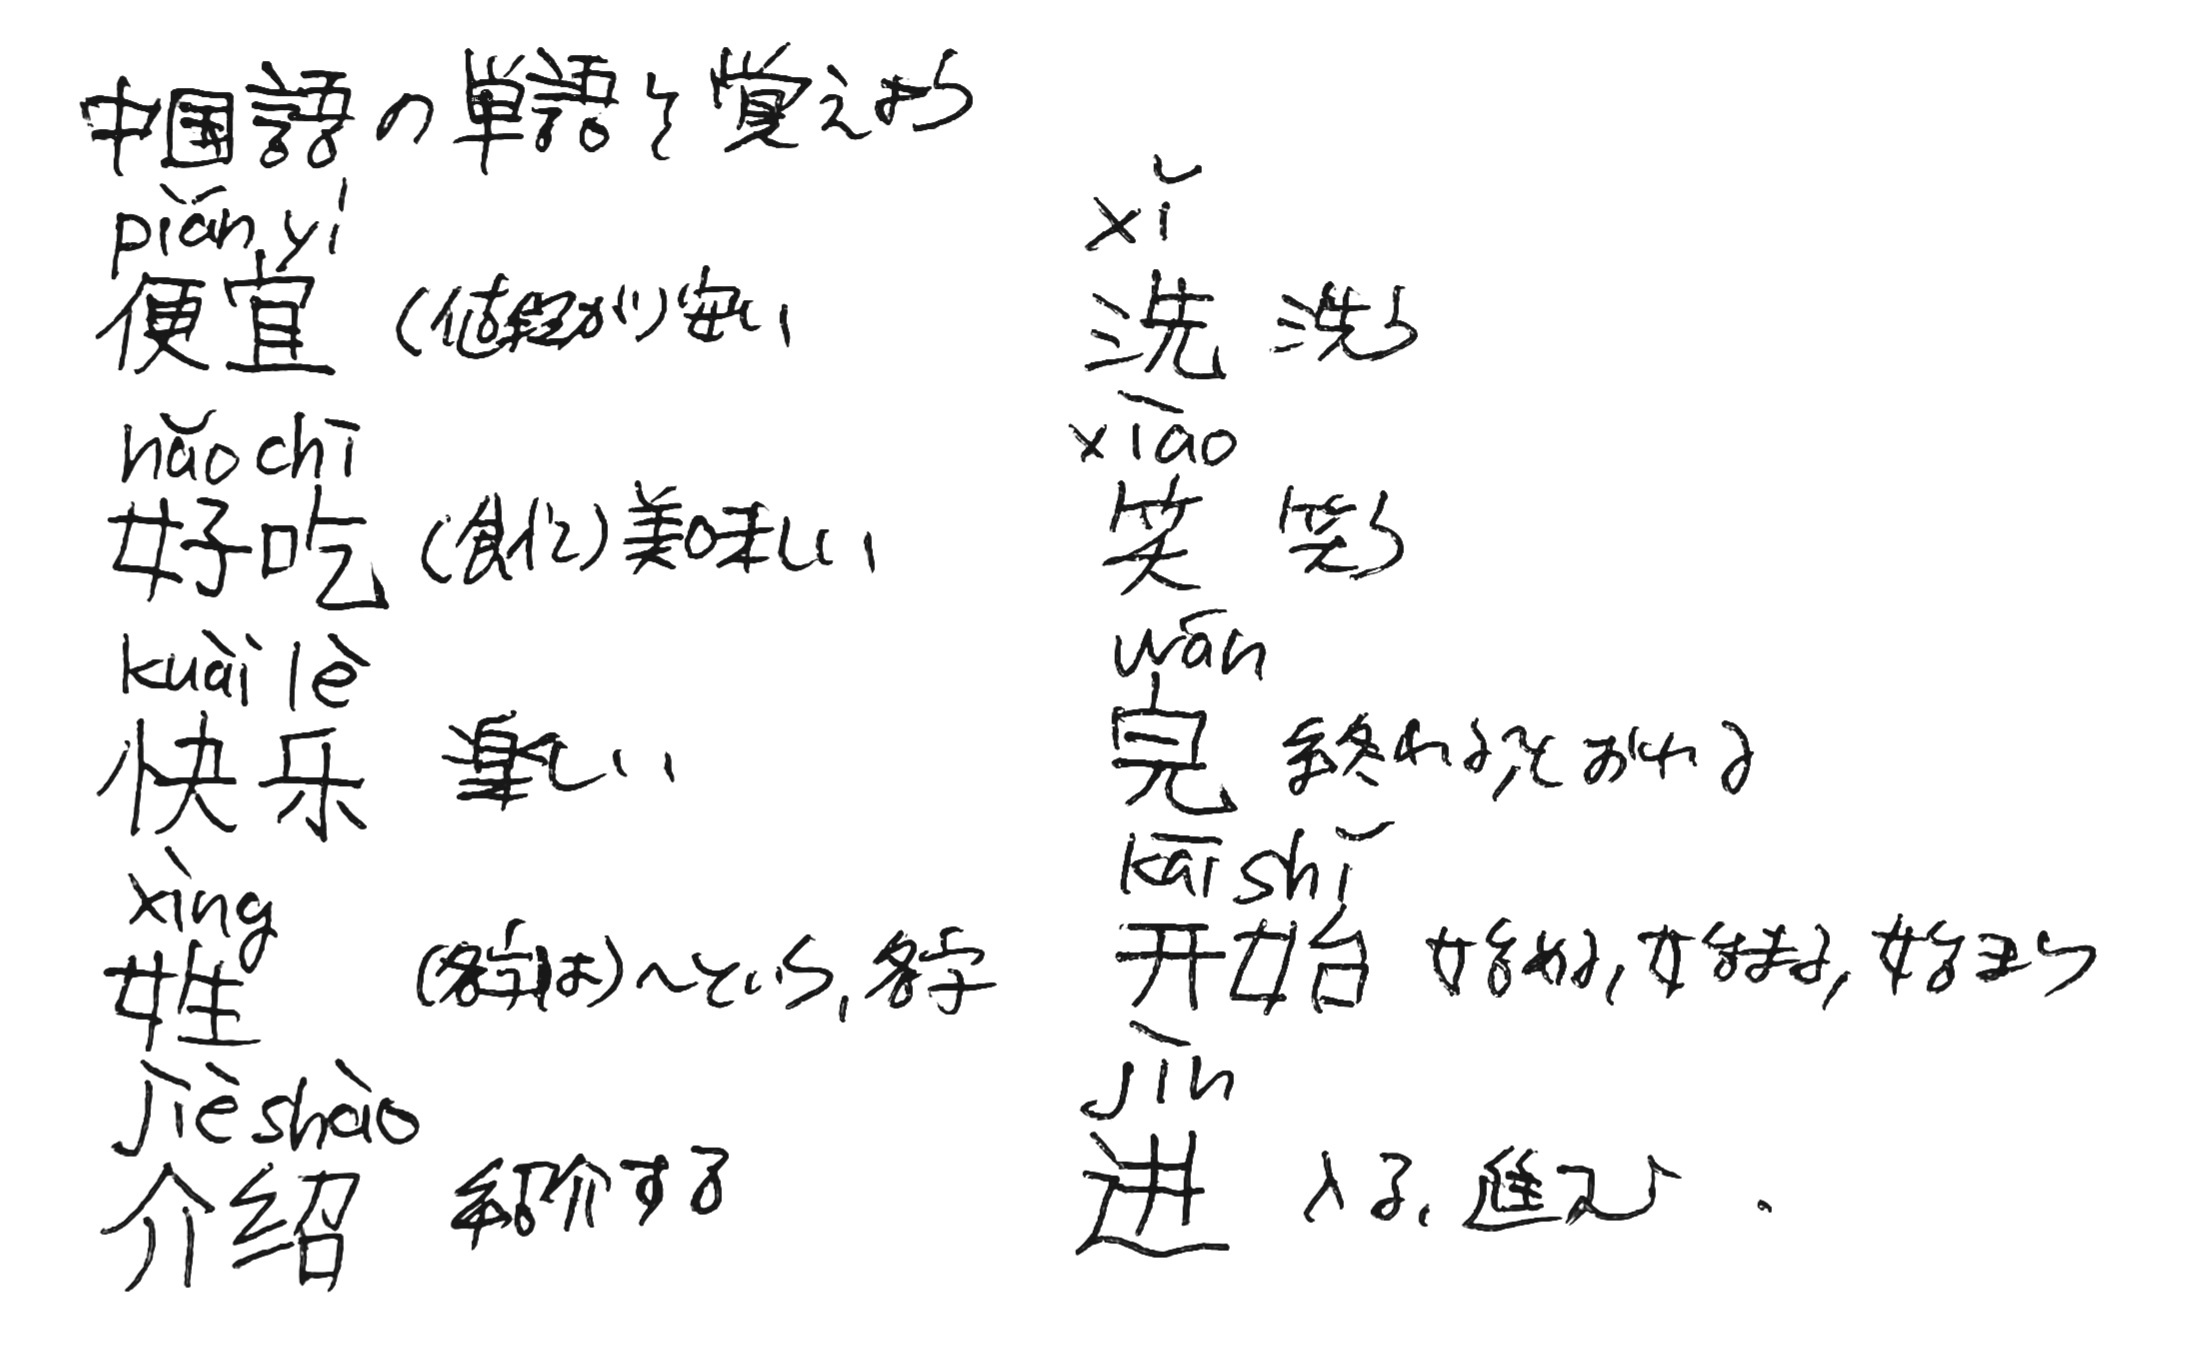 中国語の単語を覚えよう
piǎn yí
便宜 (値段が)安い
hǎo chī
好吃 (食べて)美味しい
kuài lè
快乐 楽しい
xìng
姓 (名字は)〜という, 名字
jiè shào
介绍 紹介する
xǐ
洗 洗う
xìao
笑 笑う
wán
完 終わる,
kāi shǐ
开始 始める, 始まる, 始まり
jìn
进 入る, 進む